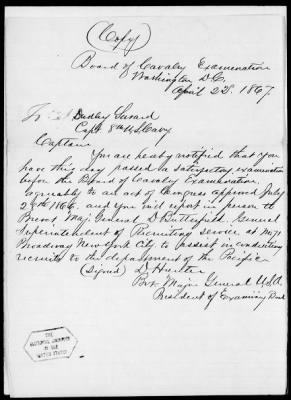 (Copy)
Board of Cavalry Examination
Washington D.C.
April 2d. 1867.
To Dudley Seward
Capt 8th U.S. Cavy
Captain
You are hereby notified that you
have this day passed a satisfactory examination
before the Board of Cavalry Examination
agreeably to an act of Congress approved July
28th 1866. and you will report in person to
Brevt Maj. General D. Butterfield. General
Superintendent of Recruiting service at No 71
Broadway New York City to assist in conducting
recruits to the department of the Pacific
(Signed) D. Hunter
Bvt. Major General U.S.A.
President of Examining Board
THE
NATIONAL ARCHIVES
OF THE
UNITED STATES